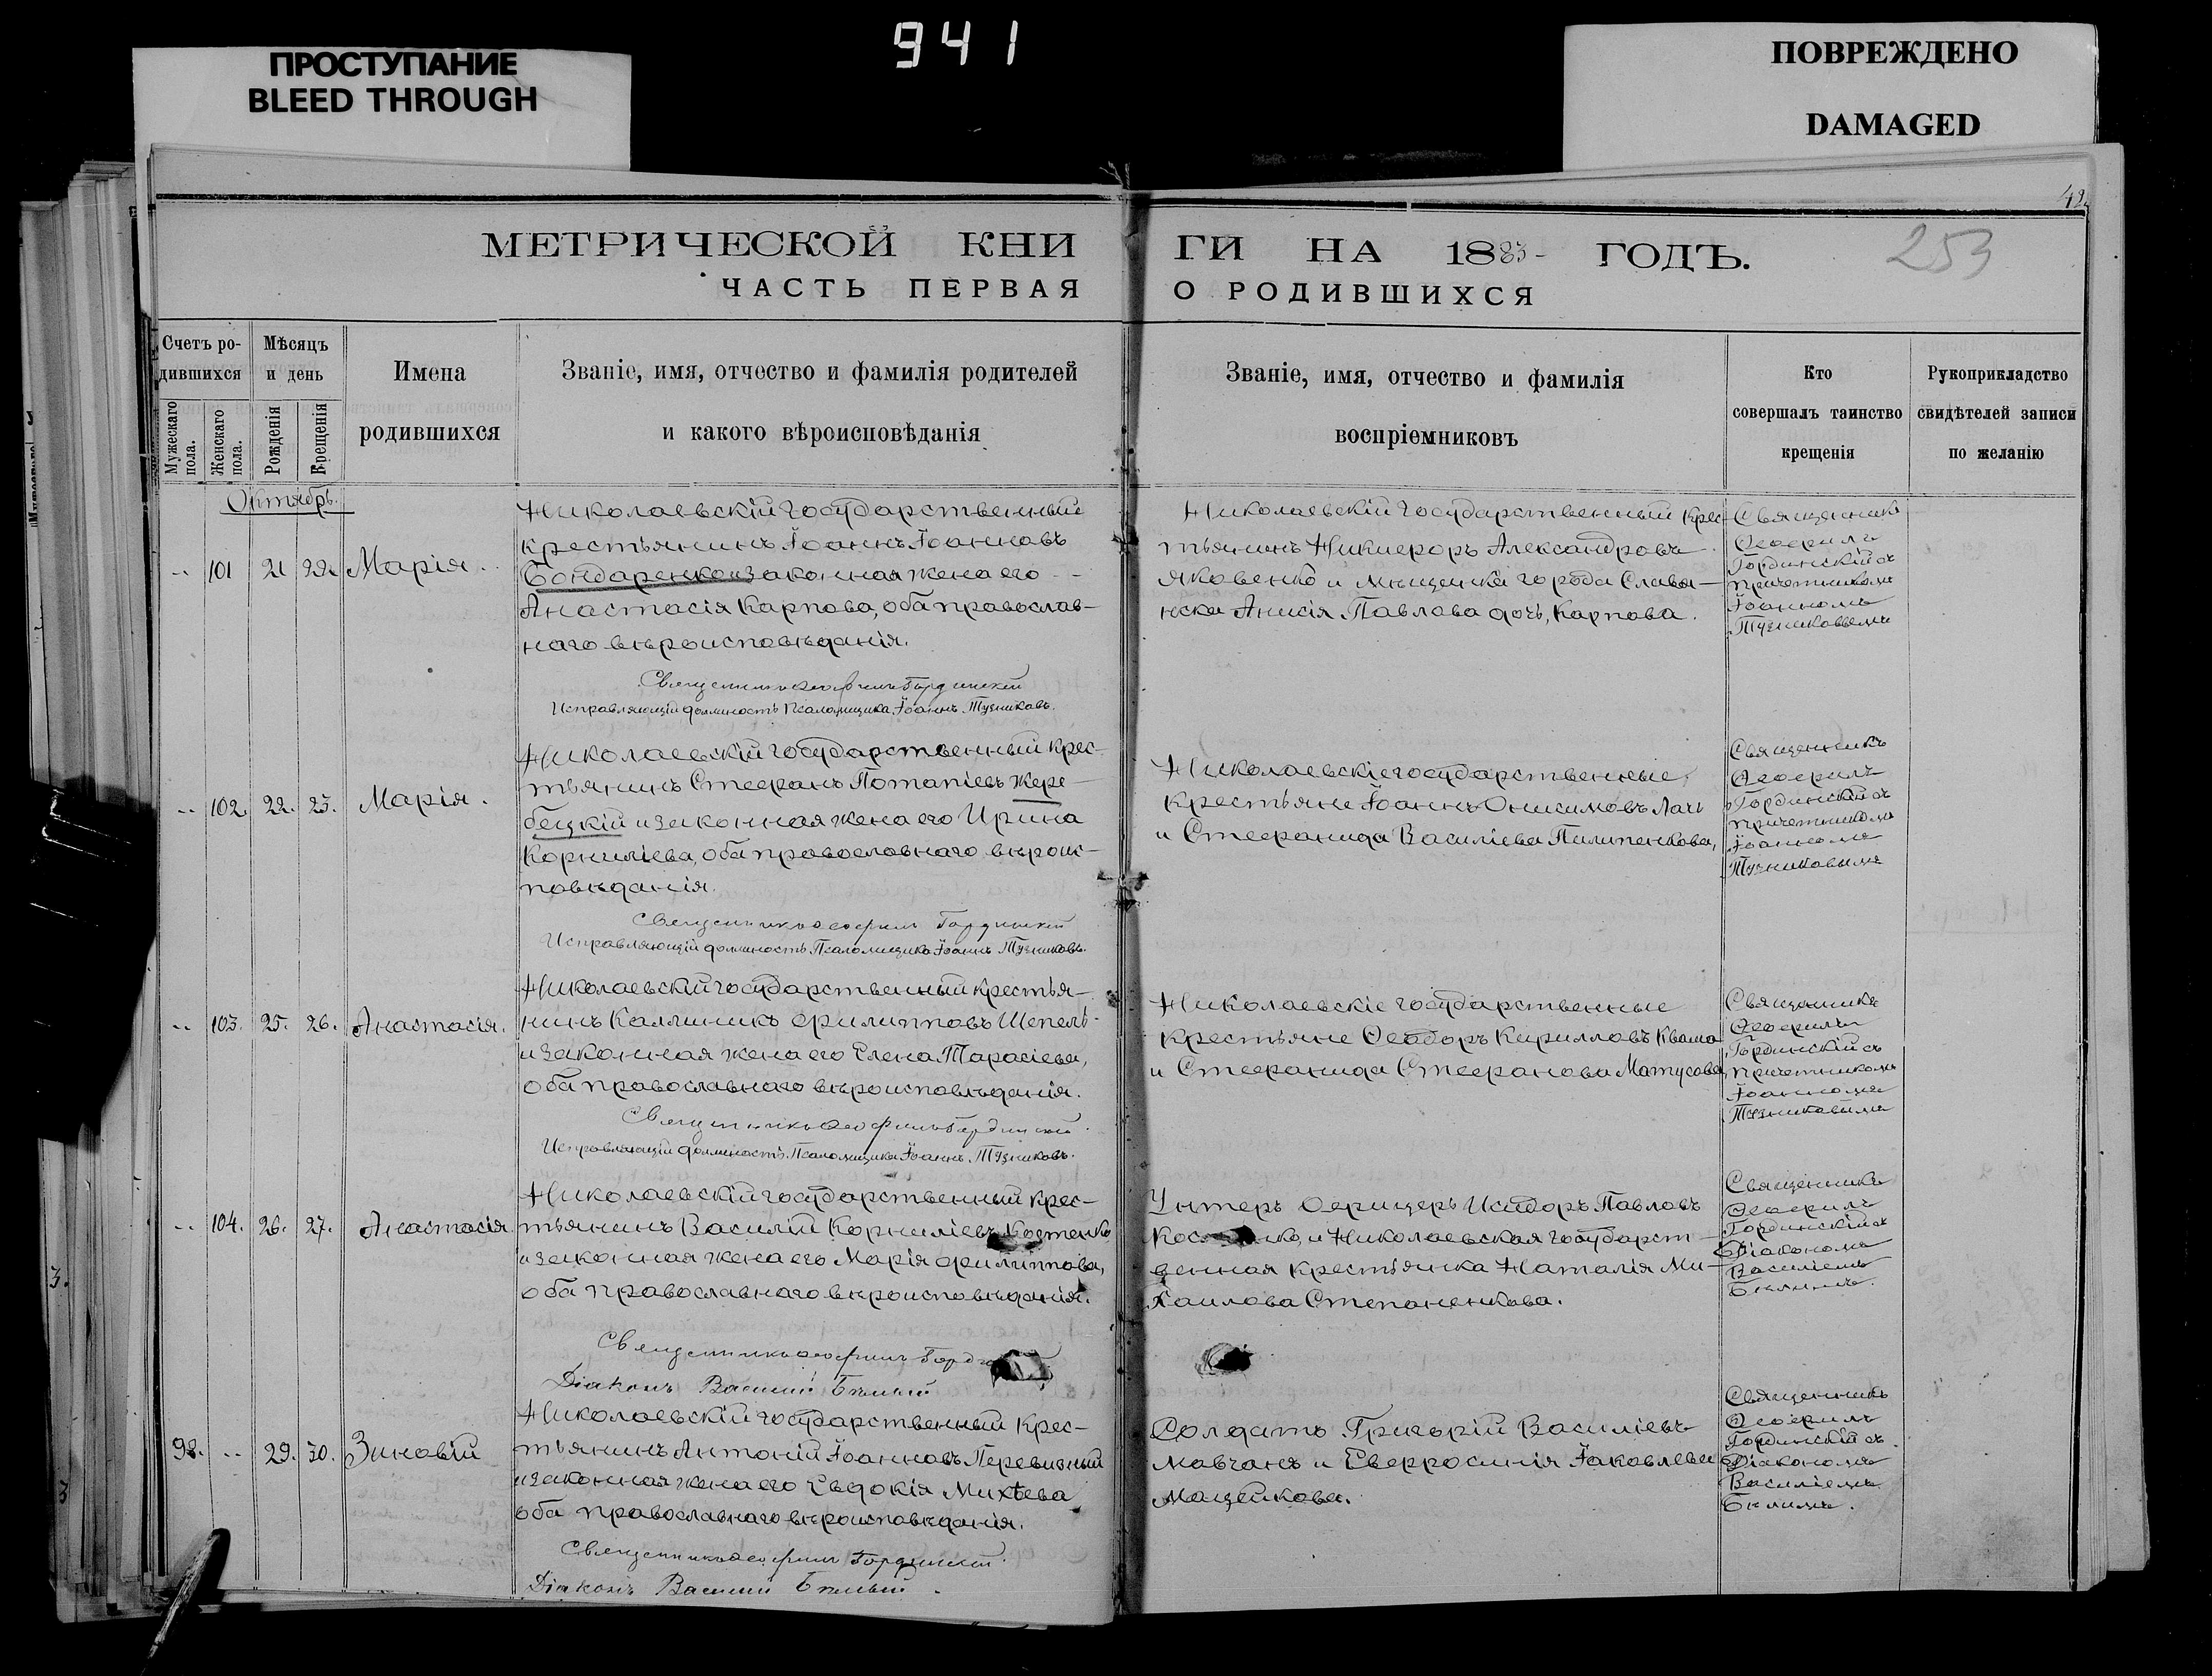 941
ПРОСТУПАНИЕ
BLEED THROUGH
ПОВРЕЖДЕНО
DAMAGED
МЕТРИЧЕСКОЙ КНИ
ГИ НА 1883 ГОДЪ.
253
ЧАСТЬ ПЕРВАЯ
О РОДИВШИХСЯ
Счетъ ро-
дившихся
Мужескаго пола.
Женскаго пола.
Мѣсяцъ
и день
Рожденія
Крещенія
Имена
родившихся
Званіе, имя, отчество и фамилія родителей
и какого вѣроисповѣданія
Званіе, имя, отчество и фамилія
воспріемниковъ
Кто
совершалъ таинство
крещенія
Рукоприкладство
свидѣтелей записи
по желанію
Октябрь.
-- 101 21 22. Марія.
Николаевскій государственный
крестьянинъ Іоаннъ Іоанновъ
Бондаренко и законная жена его
Анастасія Карпова, оба православ-
наго вѣроисповѣданія.
Николаевскій государственный крес-
тьянинъ Никифоръ Александровъ
Яковенко и мѣщенка города Славя-
нска Анисія Павлова дочь, Карпова.
Священникъ
Ѳеофилъ
Гординскій съ
причетникомъ
Іоанномъ
Тузниковымъ
Священникъ Ѳеофилъ Гординскій
Исправляющій должность Псаломщика Іоаннъ Тузниковъ.
-- 102. 22. 23. Марія.
Николаевскій государственный крес-
тьянинъ Стефанъ Потапіевъ Жере-
бецкій и законная жена его Ирина
Корниліева, оба православнаго вѣроис-
повѣданія.
Николаевскіе государственные
крестьяне Іоаннъ Онисимовъ Лачъ
и Стефанида Василіева Пилипенкова,
Священникъ
Ѳеофилъ
Гординскій съ
причетникомъ
Іоанномъ
Тузниковымъ
Священникъ Ѳеофилъ Гординскій
Исправляющій должность Псаломщика Іоаннъ Тузниковъ.
-- 103. 25. 26. Анастасія.
Николаевскій государственный крестья-
нинъ Каллиникъ Филипповъ Шепель
и законная жена его Елена Тарасіева,
оба православнаго вѣроисповѣданія.
Николаевскіе государственные
крестьяне Ѳеодоръ Кирилловъ Кваша
и Стефанида Стефанова Матусова,
Священникъ
Ѳеофилъ
Гординскій съ
причетникомъ
Іоанномъ
Тузниковымъ
Священникъ Ѳеофилъ Гординскій
Исправляющій должность Псаломщика Іоаннъ Тузниковъ.
-- 104. 26. 27. Анастасія
Николаевскій государственный крес-
тьянинъ Василій Корниліевъ Костенко
и законная жена его Марія Филиппова,
оба православнаго вѣроисповѣданія.
Унтеръ Офицеръ Исидоръ Павловъ
и Николаевская государст-
венная крестьянка Наталія Ми-
хаилова Степаненкова.
Священникъ
Ѳеофилъ
Гординскій съ
Діакономъ
Василіемъ
Бѣлымъ.
Священникъ Ѳеофилъ
Діаконъ Василій Бѣлый
98. -- 29. 30. Зиновій
Николаевскій государственный крес-
тьянинъ Антоній Іоанновъ Перевизный
и законная жена его Евдокія Михѣева
оба православнаго вѣроисповѣданія.
Солдатъ Григорій Василіевъ
Мовчанъ и Евфросинія Іаковлева
Мацейкова.
Священникъ
Ѳеофилъ
Гординскій съ
Діакономъ
Василіемъ
Бѣлымъ.
Священникъ Ѳеофилъ Гординскій
Діаконъ Василій Бѣлый.